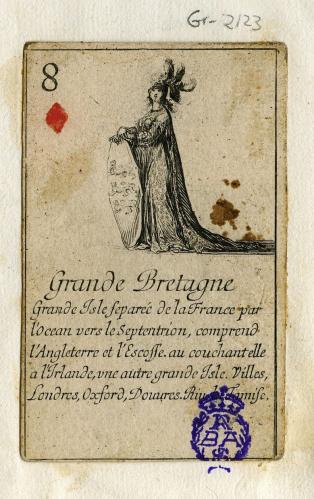 Gr-2123
8
Grande Bretagne
Grande Isle separée de la France par
l'Ocean vers le Septentrion, comprend
l'Angleterre et l'Escosse. au couchant elle
a l'Irlande, vne autre grande Isle. Villes,
Londres, Oxford, Douures. Riu. Tamise.
RABASF